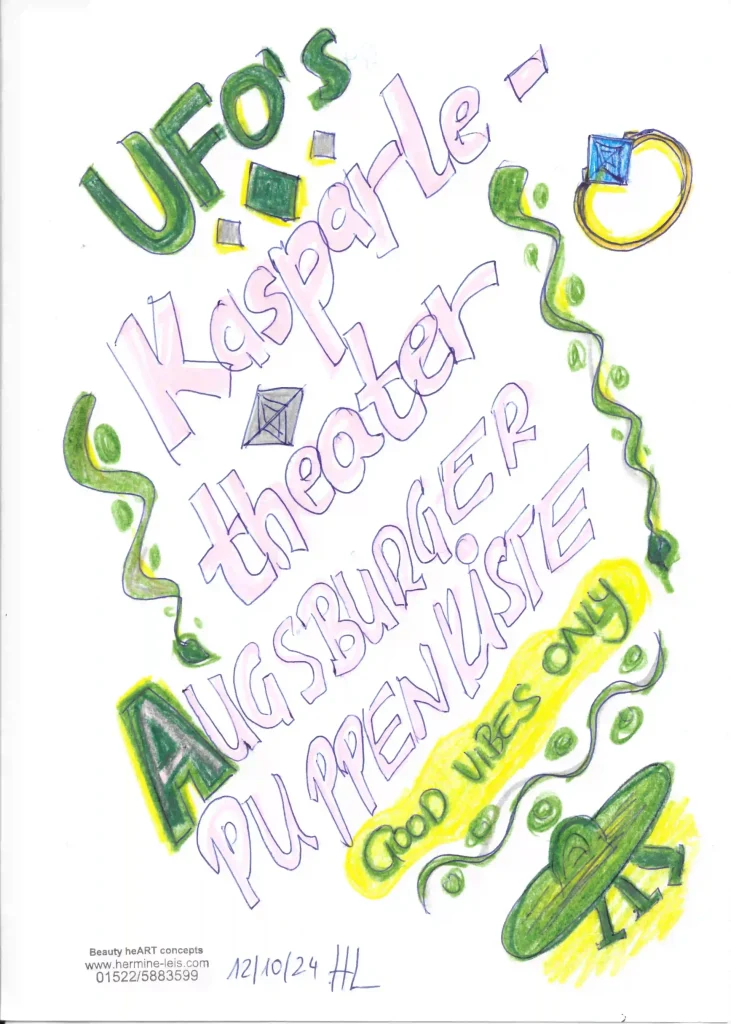 UFO's
Kasparle-
theater
AUGSBURGER
PUPPENKISTE
GOOD VIBES ONLY
Beauty heART concepts
www.hermine-leis.com
01522/5883599
12/10/24 HL